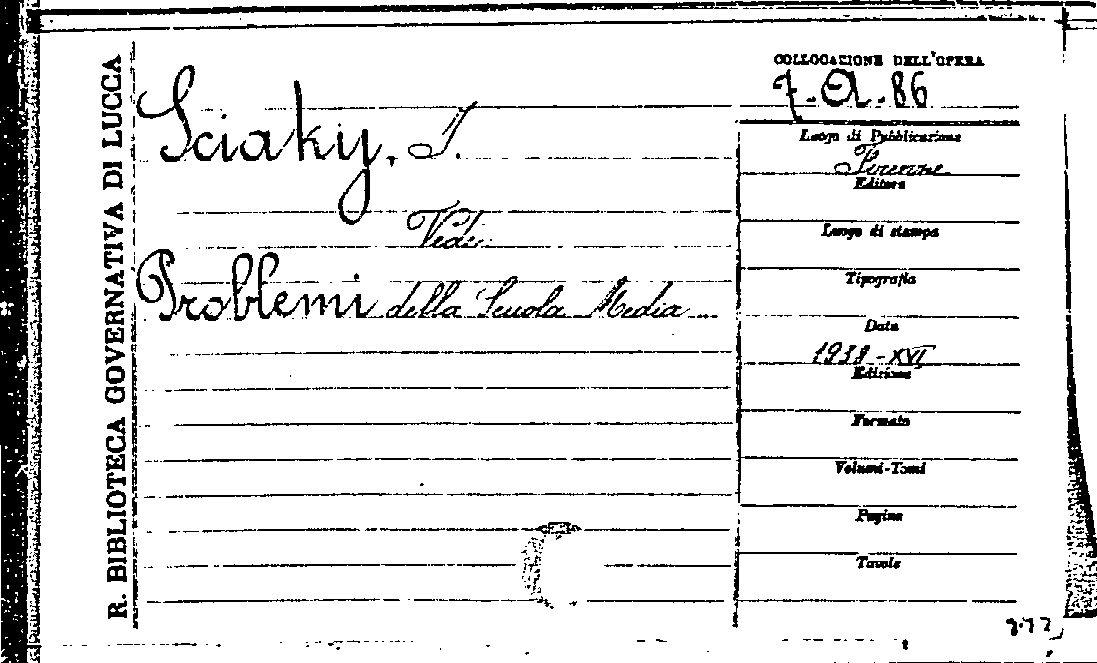 R. BIBLIOTECA GOVERNATIVA DI LUCCA
COLLOCAZIONE DELL'OPERA
7.A.86
Sciaky, I.
Vedi:
Problemi della Scuola Media
Luogo di Pubblicazione
Firenze
Editore
Luogo di stampa
Tipografia
Data
1938-XVI
Edizione
Formato
Volumi-Tomi
Pagine
Tavole